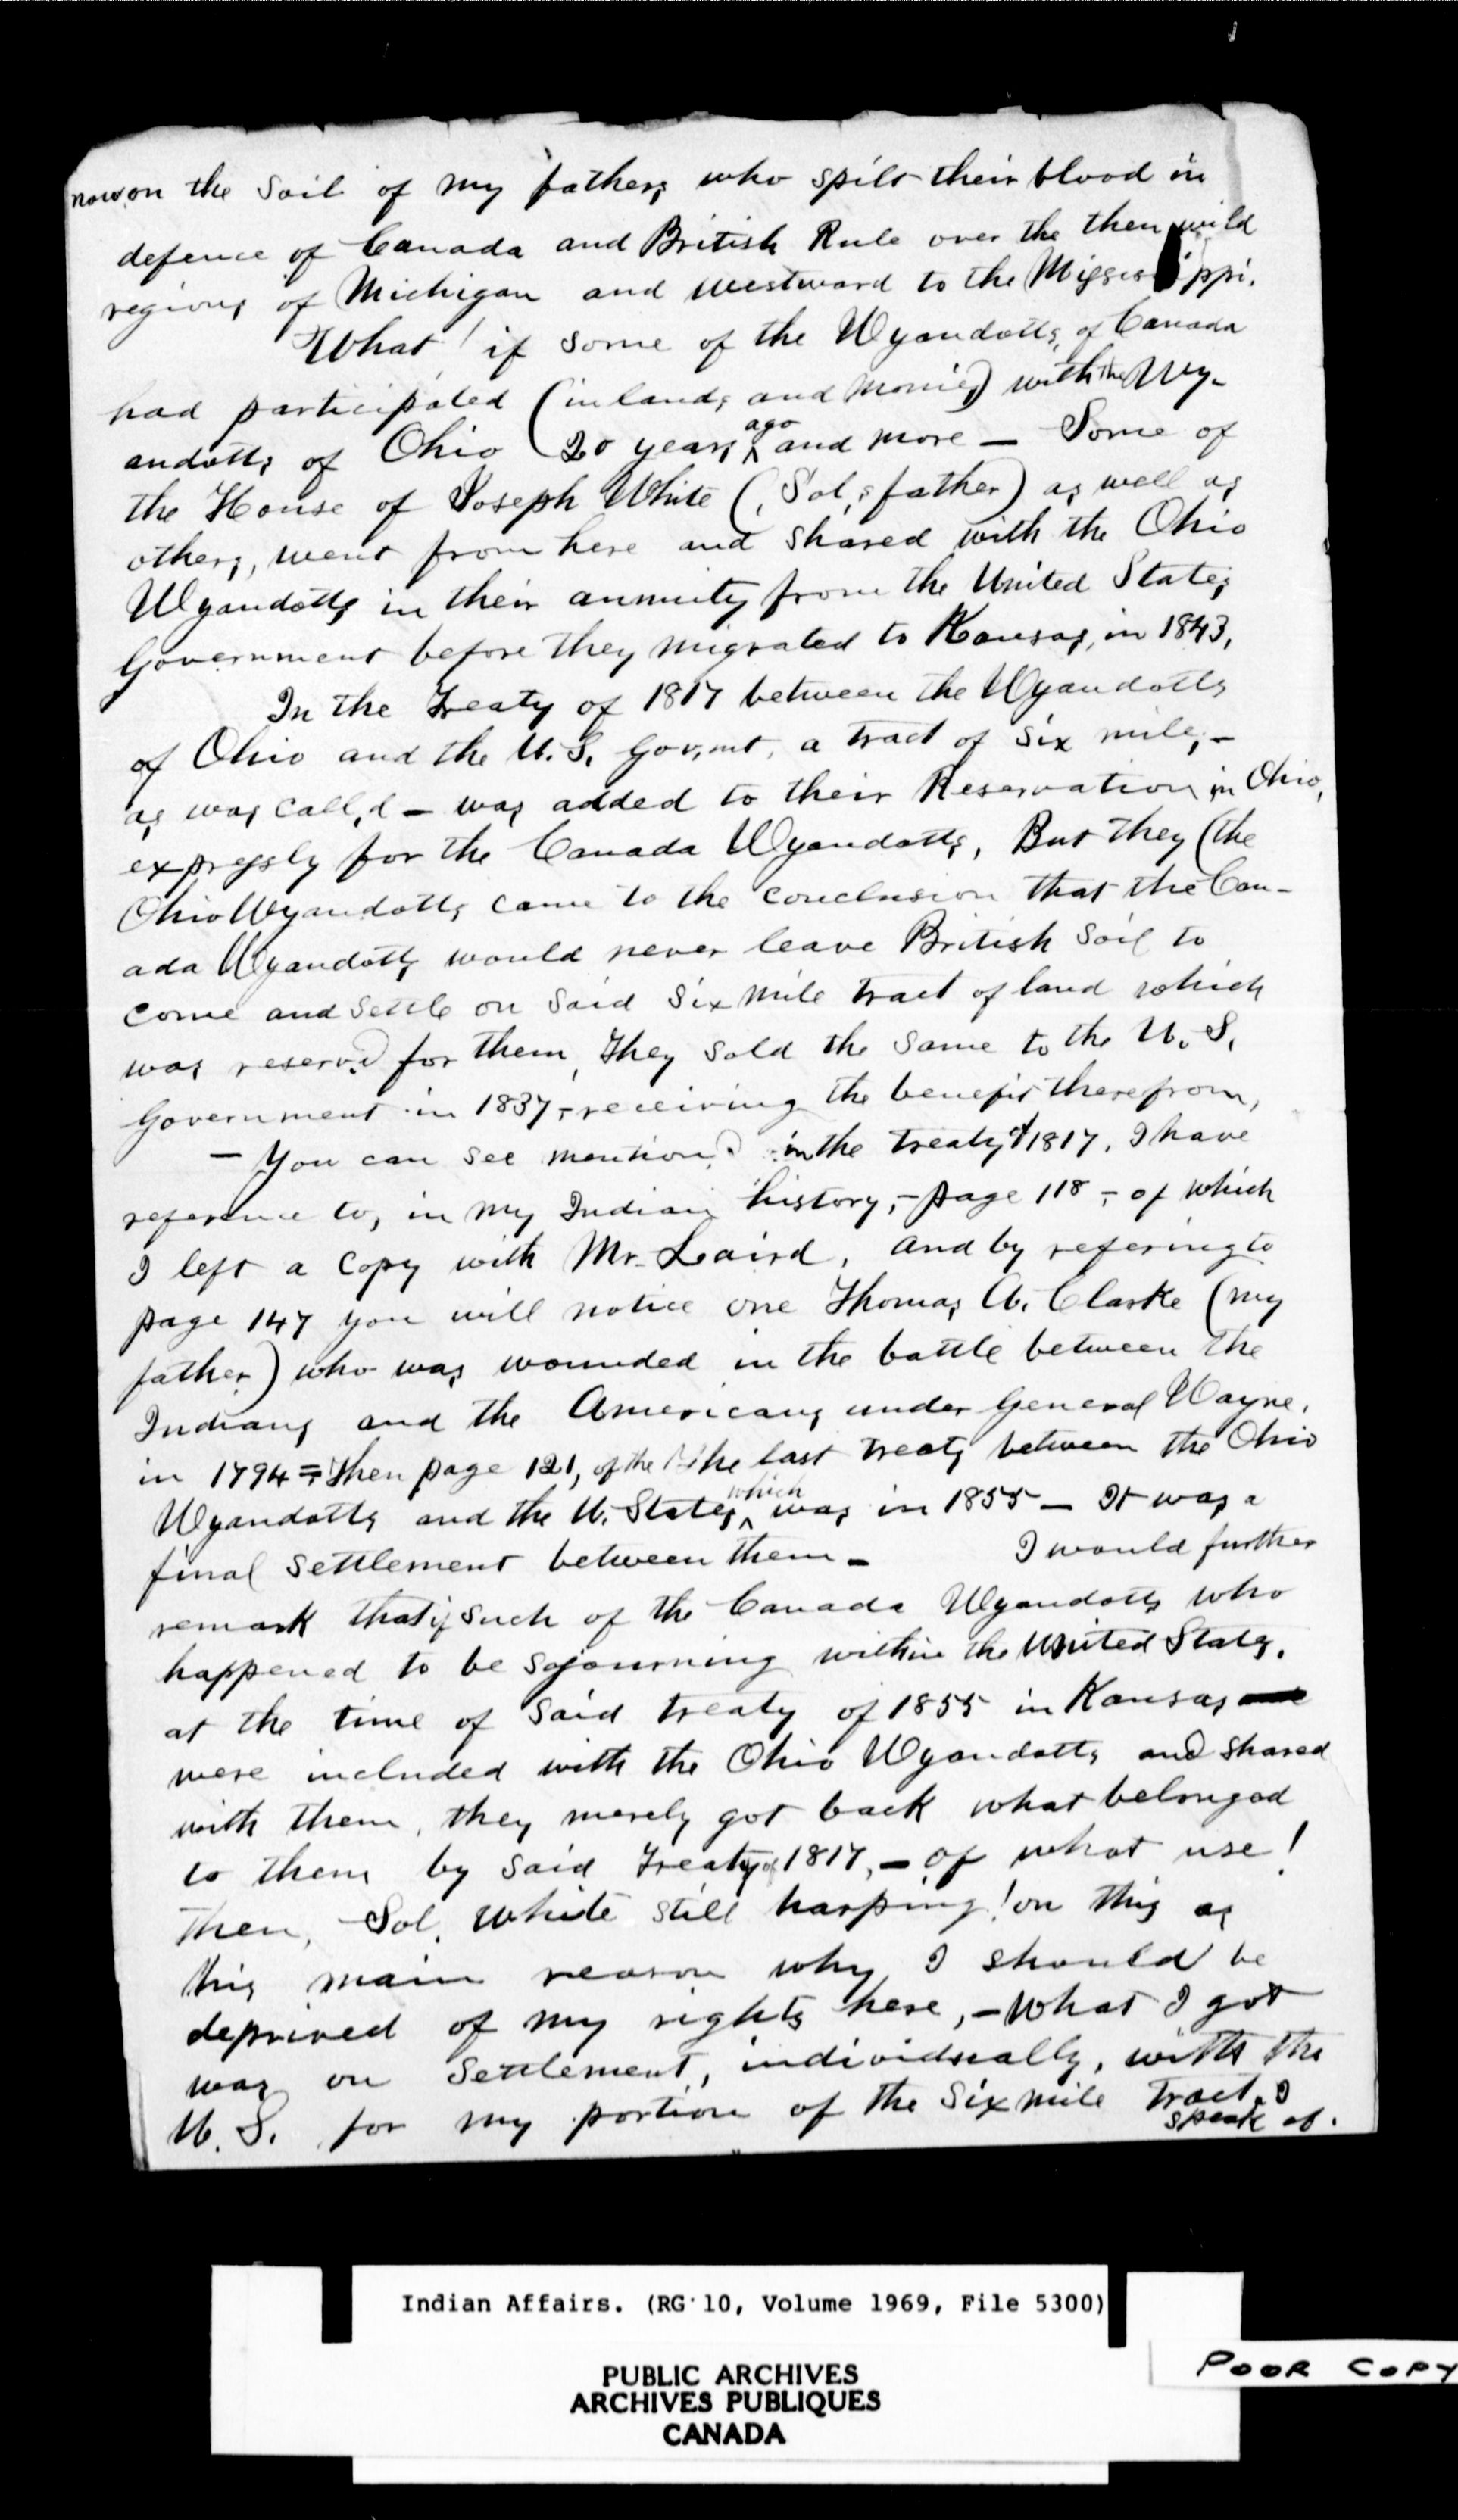 now on the soil of my fathers who spilt their blood in
defence of Canada and British Rule over the then wild
regions of Michigan and westward to the Mississippi.
What! if some of the Wyandotts, of Canada
had participated (in lands and monies) with the Wy-
andotts of Ohio 20 years ago and more — Some of
the House of Joseph White (Sol,s father) as well as
others, went from here and shared with the Ohio
Wyandotts in their annuity from the United States
Government before they migrated to Kansas, in 1843,
In the Treaty of 1817 between the Wyandotts
of Ohio and the U.S. Gov,mt, a tract of six miles, -
as was call,d - was added to their Reservation in Ohio,
expressly for the Canada Wyandotts, But they (the
Ohio Wyandotts came to the conclusion that the Can-
ada Wyandotts would never leave British soil to
come and settle on said six mile tract of land which
was reserv,d for them, They sold the same to the U.S.
Government in 1837, - receiving the benefit therefrom,
— You can see mention,d in the treaty of 1817, I have
reference to, in my Indian history, - page 118 - of which
I left a copy with Mr. Laird, and by refering to
page 147 you will notice one Thomas A. Clarke (my
father) who was wounded in the battle between the
Indians and the Americans under General Wayne,
in 1794 = Then page 121, of the last treaty between the Ohio
Wyandotts and the U. States, which was in 1855 — It was a
final settlement between them — I would further
remark that if such of the Canada Wyandotts who
happened to be sojourning within the United States,
at the time of said treaty of 1855 in Kansas
were included with the Ohio Wyandotts and shared
with them, they merely got back what belonged
to them by said Treaty of 1817, — of what use!
then, Sol. White still harping! on this as
his main reason why I should be
deprived of my rights here, - What I got
was on settlement, individually, with the
U.S. for my portion of the six mile tract I
speak of.
Indian Affairs. (RG 10, Volume 1969, File 5300)
PUBLIC ARCHIVES
ARCHIVES PUBLIQUES
CANADA
POOR COPY